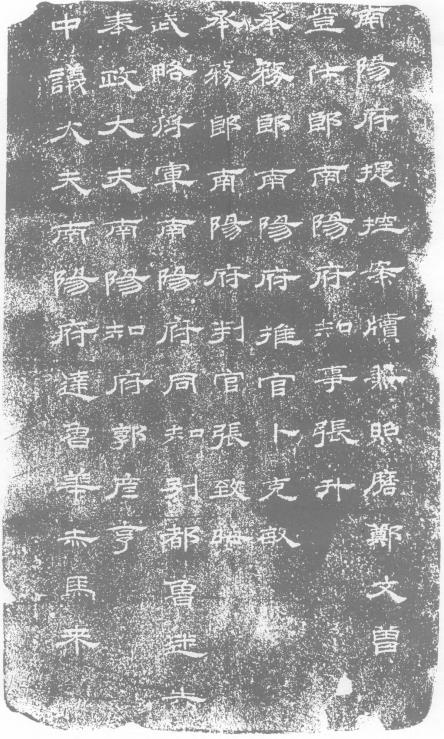 南陽府提控案牘兼照磨鄭文曾
登仕郎南陽府知事張升
承務郎南陽府推官卜克敏
承務郎南陽府判官張致
武略將軍南陽府同知別都魯迷失
奉政大夫南陽知府郭彦亨
中議大夫南陽府達魯花赤馬來